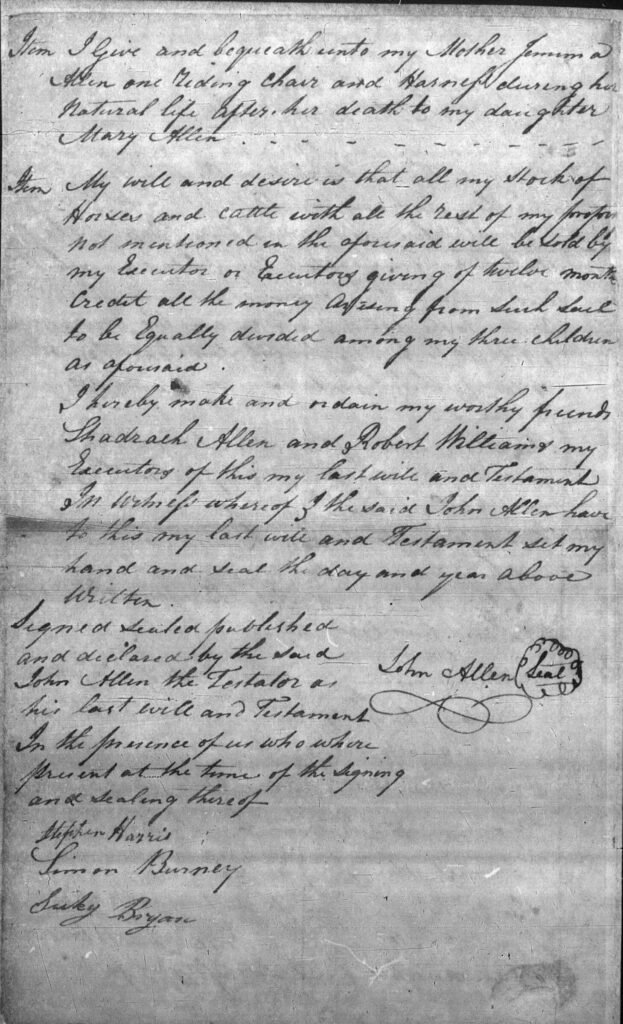 Item I Give and bequeath unto my Mother Jemima
Allen one riding Chair and Harness during her
Natural life after her death to my daughter
Mary Allen . . - - - - - - - - -
Item My will and desire is that all my Stock of
Horses and Cattle with all the rest of my
not mentioned in the aforesaid will be sold by
my Executor or Executors giving of twelve month
Credit all the money Arising from Such Sail
to be Equally divided among my three children
as aforesaid .
I hereby make and ordain my worthy friends
Shadrach Allen and Robert Williams my
Executors of this my last will and Testament
In Witness whereof I the said John Allen have
to this my last will and Testament set my
hand and seal the day and year above
Written.
Signed sealed published
and declared by the said
John Allen the Testator as
his last will and Testament
In the presence of us who where
present at the time of the signing
and sealing thereof
John Allen Seal
Stephen Harris
Simon Burney
Suky Bryan